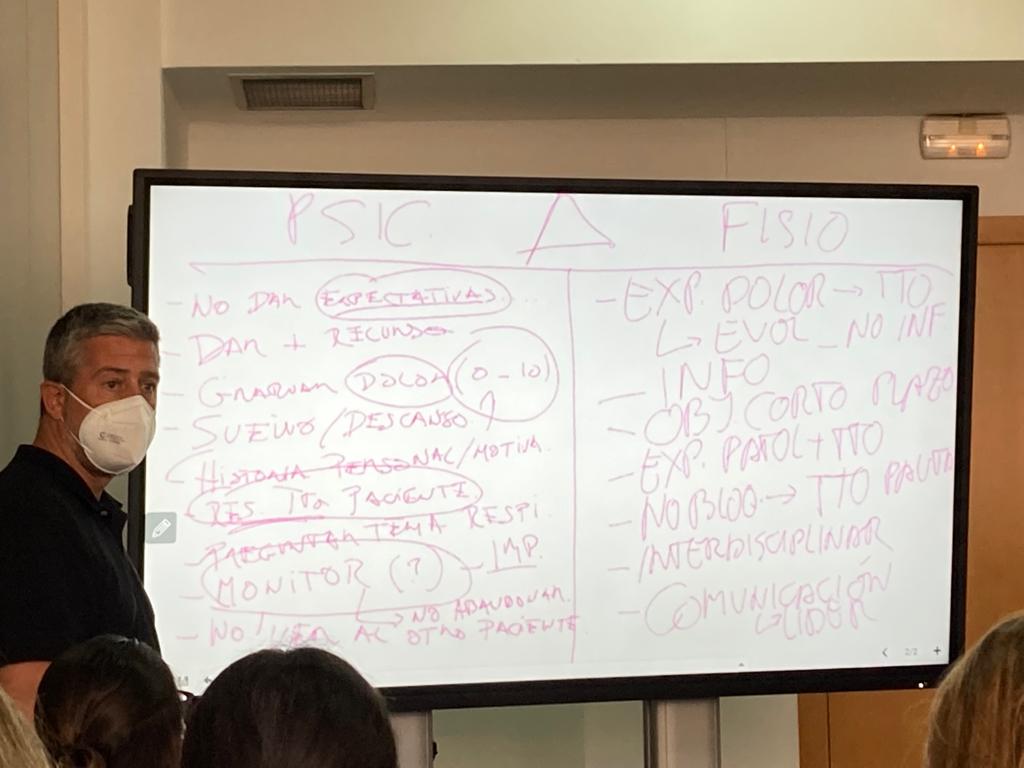 PSIC. Δ FISIO
- NO DAR EXPECTATIVAS...
- DAR + RECURSO
- GRADUAR DOLOR (0-10)
- SUEÑO/DESCANSO
HISTORIA PERSONAL/MOTIVA.
- RES. PACIENTE
- PREGUNTAR TEMA RESPI.
- MONITOR (?) - IMP.
→ NO ABANDONAR.
- NO VER AL OTRO PACIENTE
- EXP. DOLOR → TTO
↳ EVOL_NO INF
- INFO
- OBJ CORTO PLAZO
- EXP. PATOL + TTO
- NO BLOQ → TTO PAUTA
- INTERDISCIPLINAR
- COMUNICACIÓN
↳ LIDER
2/2